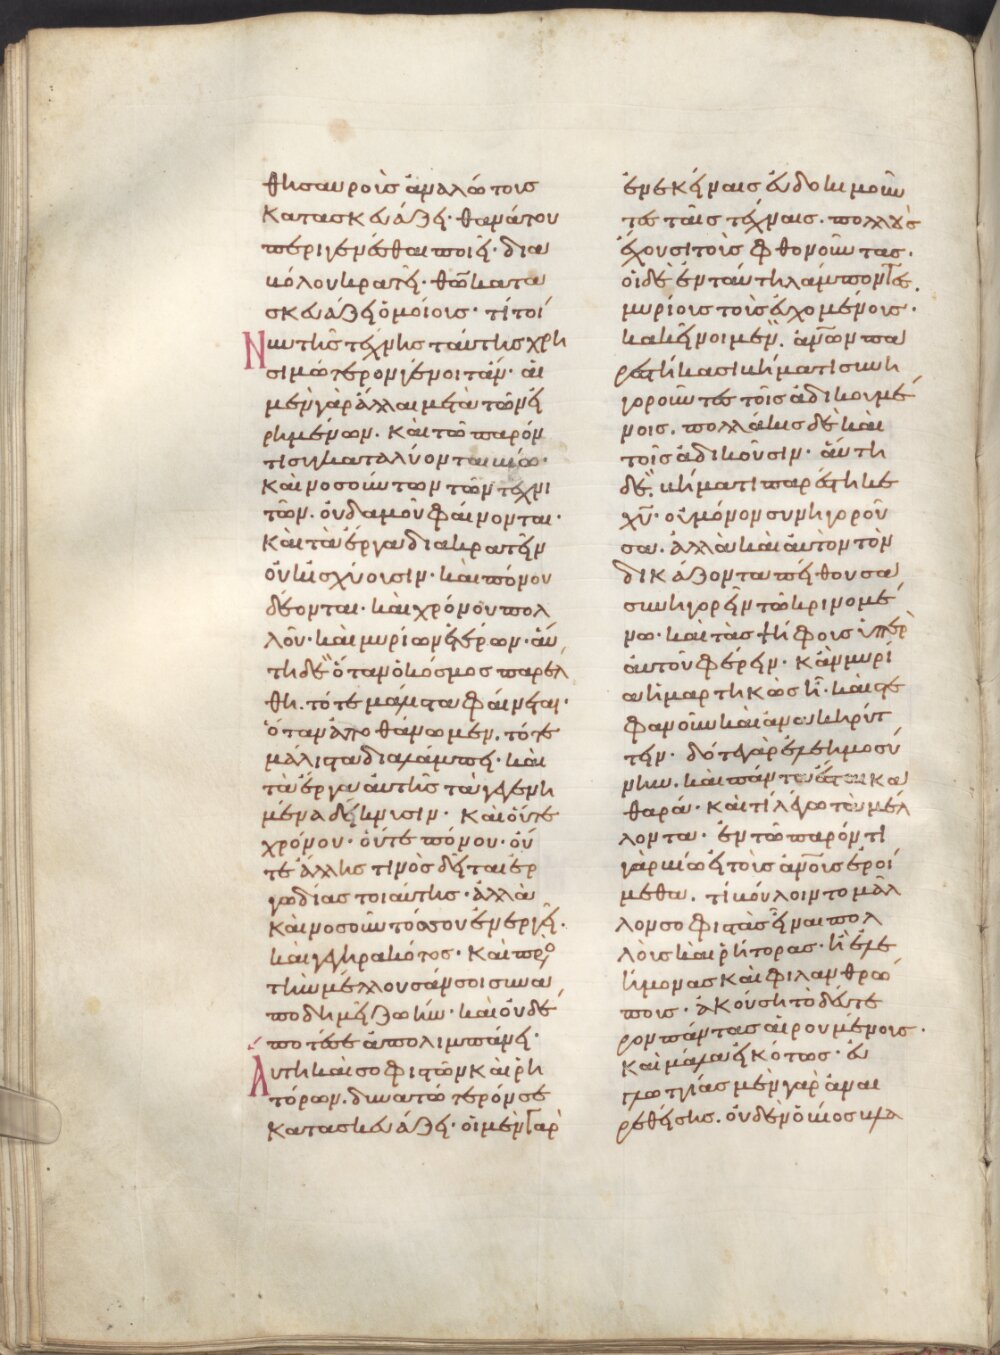 θησαυροῖς ἀναλώτοις
κατασκευάζει· θανάτου
περιγενέσθαι ποιεῖ· δια
κόλου κρατεῖ· θῶ κατα
σκευάζει ὁμοίοις· τί τοί
νυν τῆς τέχνης ταύτης χρη
σιμώτερον γένοιτ' ἄν· αἱ
μὲν γὰρ ἄλλαι μετὰ τῶν εἰ
ρημένων. καὶ τῶ παρόν
τι συγκαταλύονται βίω·
καὶ νοσούντων τῶν τεχνι
τῶν. οὐδαμοῦ φαίνονται·
καὶ τὰ ἔργα διακρατεῖν
οὐκ ἰσχύουσιν· καὶ πόνου
δέονται· καὶ χρόνου πολ
λοῦ· καὶ μυρίων ἑτέρων· αὕ
τη δὲ ὅταν ὁ κόσμος παρέλ
θη. τότε μάλιστα φαίνεται·
ὅταν ἀποθάνωμεν. τότε
μάλιστα διαλάμπει· καὶ
τὰ ἔργα αὐτῆς τὰ γεγενη
μένα δείκνυσιν· καὶ οὔτε
χρόνου· οὔτε πόνου· οὔ
τε ἄλλης τινὸς δεῖται ἐρ
γωδίας τοιαύτης· ἀλλὰ
καὶ νοσοῦντός σου ἐνεργεῖ·
καὶ γεγηρακότος· καὶ πρὸς
τὴν μέλλουσάν σοι συνα
ποδημεῖ ζωήν· καὶ οὐδέ
ποτέ σε ἀπολιμπάνει·
Αὕτη καὶ σοφιστῶν καὶ ῥη
τόρων. δυνατώτερόν σε
κατασκευάζει· οἱ μὲν γὰρ
ἐν ἐκείναις εὐδοκιμοῦν
τες ταῖς τέχναις. πολλοὺς
ἔχουσι τοὺς φθονοῦντας·
οἱ δὲ ἐν ταύτη λάμποντες.
μυρίους τοὺς εὐχομένους·
κακεῖνοι μὲν. ἀνων πα
ρεστήκασι βήματι συνη
γοροῦντες τοῖς ἀδικουμέ
νοις. πολλάκις δὲ καὶ
τοῖς ἀδικοῦσιν· αὕτη
δὲ. βήματι παρέστηκε
χῦ· οὐ μόνον συνηγοροῦ
σα. ἀλλὰ καὶ αὐτὸν τὸν
δικάζοντα πείθουσα
συνηγορεῖν τῶ κρινομέ
νω· καὶ τὰς ψήφους ὑπὲρ
αὐτοῦ φέρειν· κἂν μυρί
α ἡμαρτηκὼς ἦ· καὶ στε
φανοῦν καὶ ἀνακηρύτ
τειν· δότε γὰρ ἐλεημοσύ
νην. καὶ πάντα ἔσται κα
θαρά· καὶ τί λέγω τὸ μέλ
λοντα· ἐν τῶ παρόντι
γὰρ βίω εἰ τοὺς ἀνους ἐροί
μεθα. τί βούλοιντο μᾶλ
λον σοφιστὰς εἶναι πολ
λοὺς καὶ ῥήτορας· ἢ ἐλε
ήμονας καὶ φιλανθρώ
πους· ἀκούση τὸ δεύτε
ρον πάντας αἱρουμένους·
καὶ μάλα εἰκότως· εὐ
γλωττίας μὲν γὰρ ἀναι
ρεθείσης. οὐδὲν ὁ βίος βλα